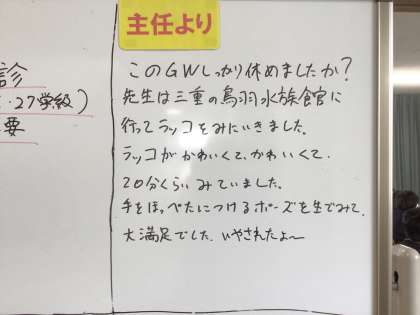 主任より
診
・27学級)
要
このGWしっかり休めましたか?
先生は三重の鳥羽水族館に
行ってラッコをみにいきました。
ラッコがかわいくて、かわいくて、
20分くらいみていました。
手をほっぺたにつけるポーズを生でみて、
大満足でした。いやされたよ〜